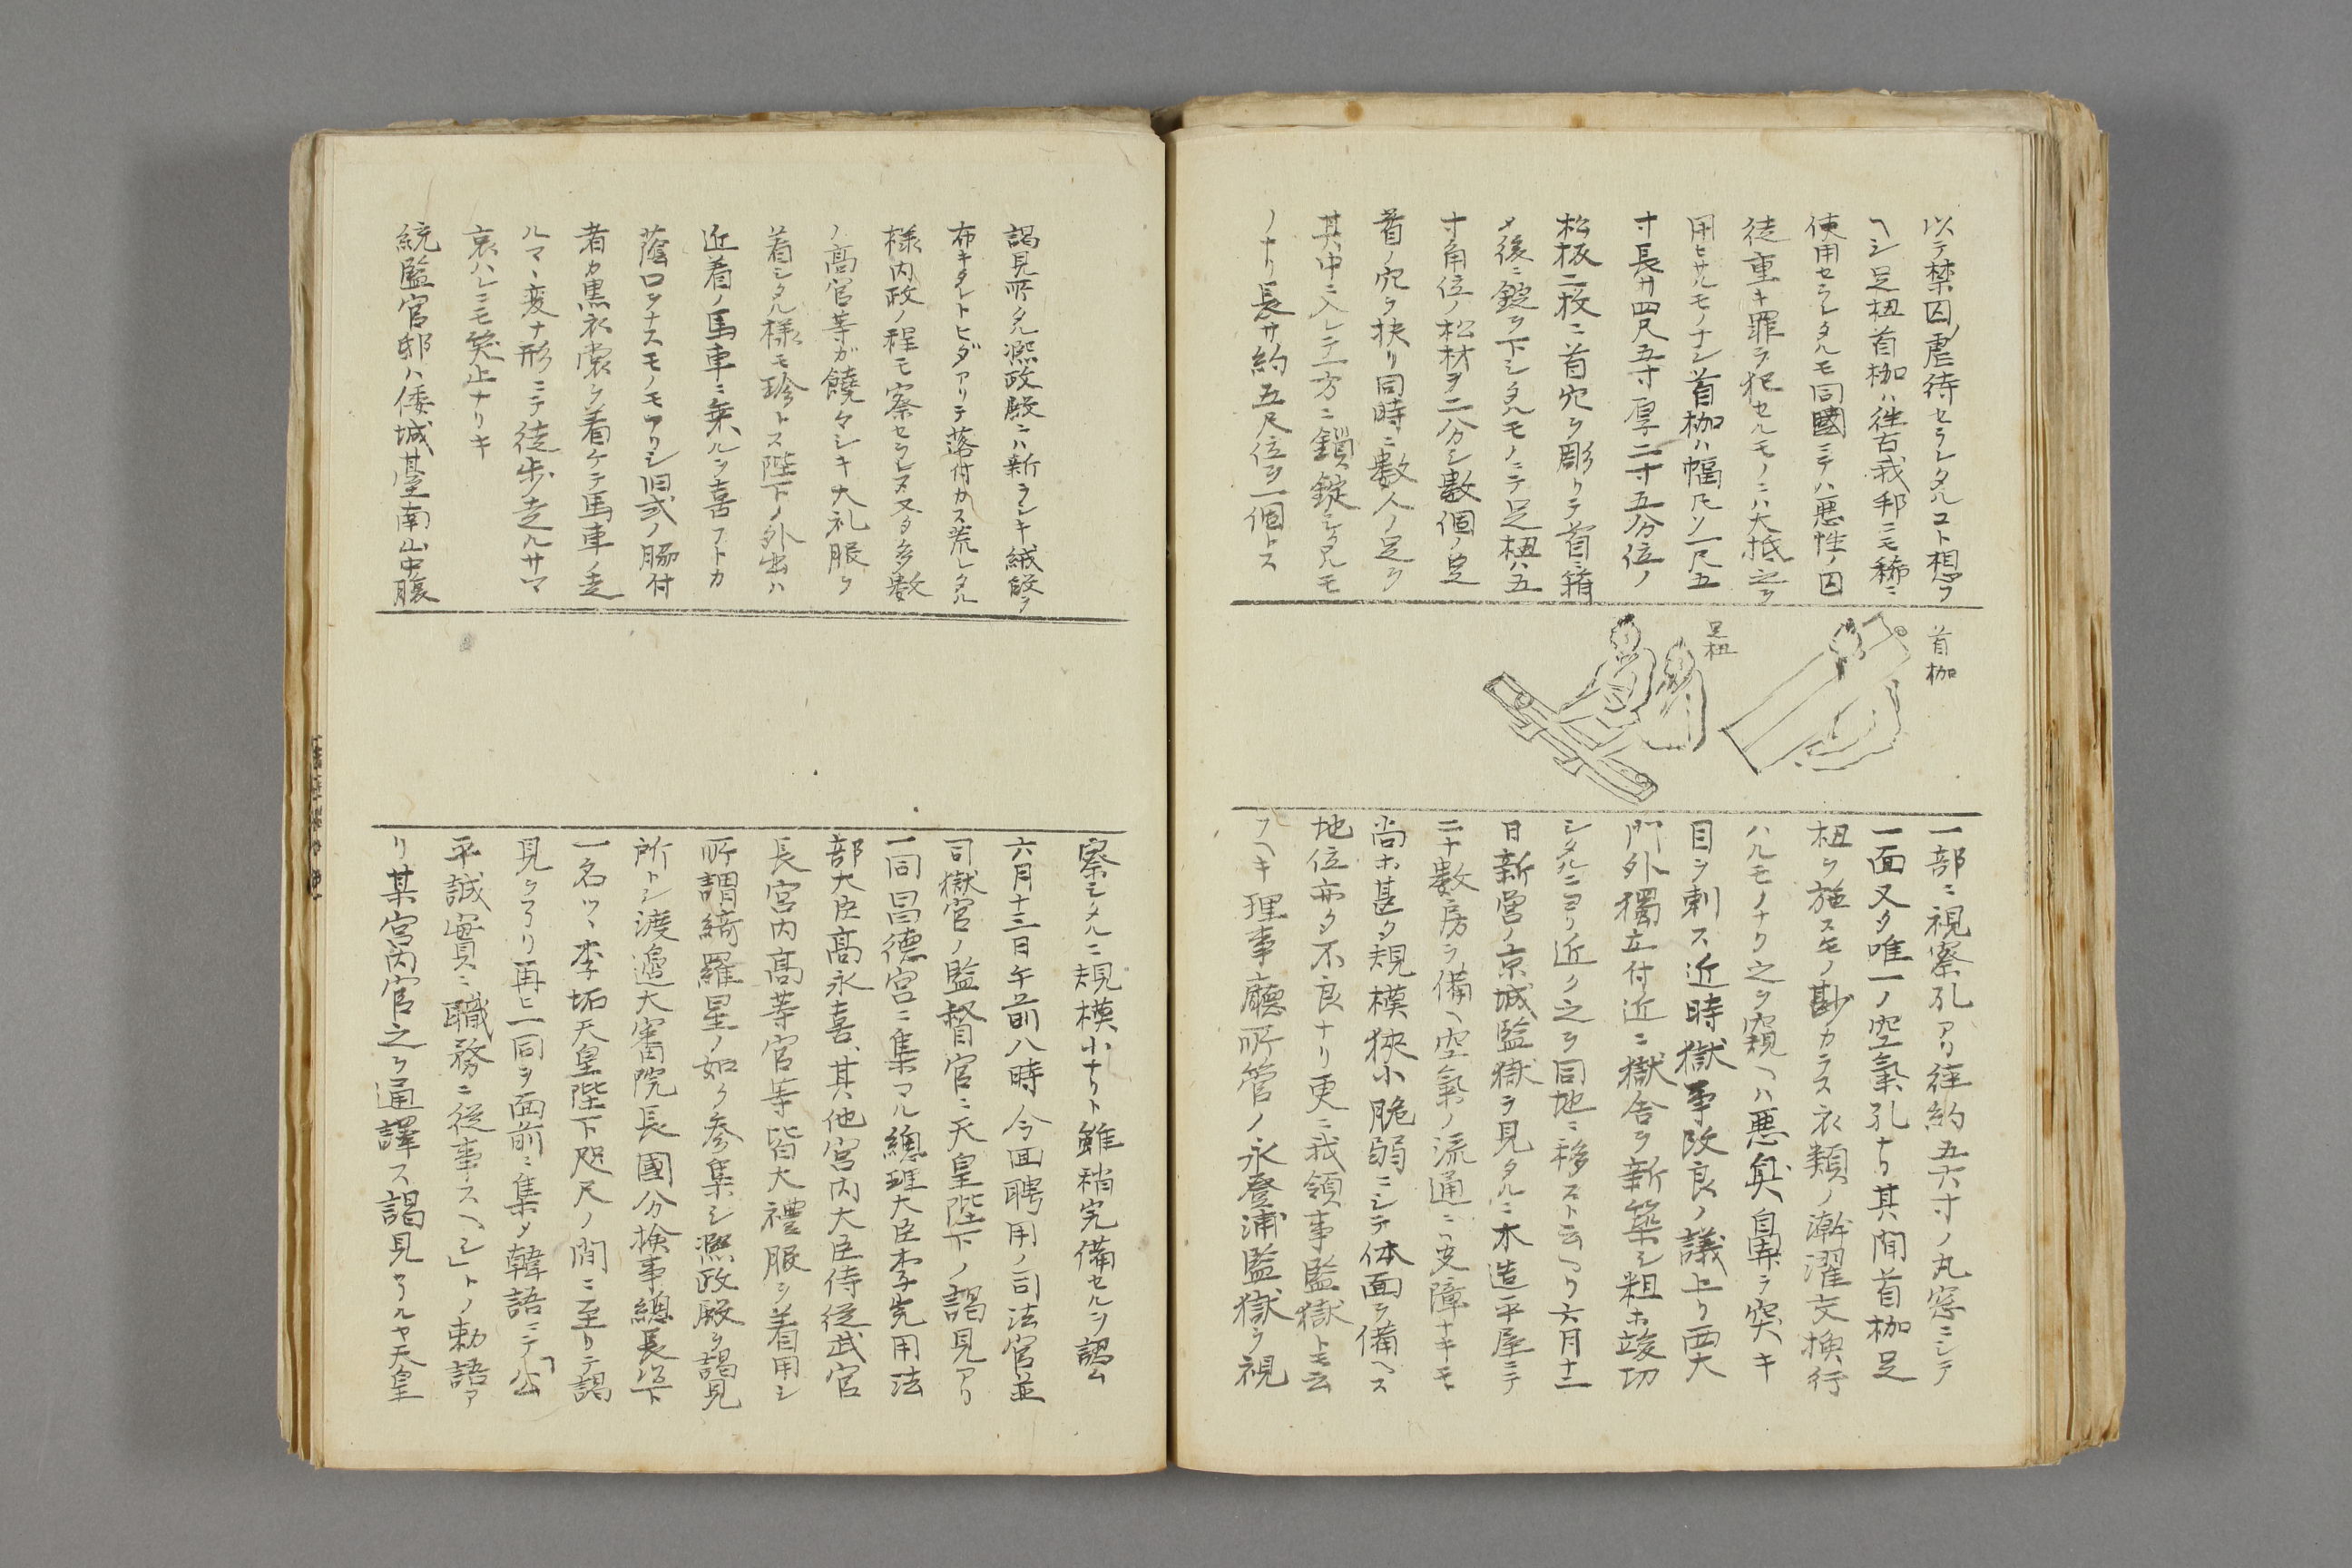 以テ禁囚ノ虐待セラレタルコト想フ
ヘシ足枉首枷ハ往古我邦ニモ稀ニ
使用セラレタルモ同國ニテハ悪性ノ囚
徒重キ罪ヲ犯セルモノニハ大抵之ヲ
用ヒサルモノナシ首枷ハ幅凡ソ一尺五
寸長サ四尺五寸厚二寸五分位ノ
松板二枚ニ首穴ヲ彫リテ首ニ箝
メ後ニ錠ヲ下シタルモノニテ足杻ハ五
寸角位ノ松材ヲ二分シ數個ノ足
首ノ穴ヲ抉リ同時ニ數人ノ足ヲ
其中ニ入レテ一方ニ鎖錠シタルモ
ノナリ長サ約五尺位ヲ一個トス
首枷
足杻
一部ニ視察孔アリ徑約五六寸ノ丸窓ニシテ
一面又タ唯一ノ空氣孔ナリ其間首枷足
杻ヲ施スモノ尠カラス衣類ノ澣濯交換行
ハルモノナク之ヲ窺ヘハ悪臭自鼻ヲ突キ
目ヲ刺ス近時獄事改良ノ議上リ西大
門外獨立付近ニ獄舎ヲ新築シ粗ホ竣功
シタルニヨリ近ク之ヲ同地ニ移スト云ヘリ六月十二
日新営ノ京城監獄ヲ見タルニ木造平屋ニテ
二十數房ヲ備ヘ空氣ノ流通ニ支障ナキモ
尚ホ甚タ規模狹小脆弱ニシテ体面ヲ備ヘス
地位亦タ不良ナリ更ニ我領事監獄トモ云
フヘキ理事廳所管ノ永登浦監獄ヲ視
謁見所タル熙政殿ニハ新ラシキ絨毯ヲ
布キタレトヒダアリテ落付カス荒レタル
様内政ノ程モ察セラレヌ又タ多數
ノ高官等ガ饒々シキ大礼服ヲ
着シタル様モ珍トス陛下ノ外出ハ
近着ノ馬車ニ乗ルヲ喜フトカ
蔭口ヲナスモノモアリシ旧式ノ脇付
者カ黒衣裳ヲ着ケテ馬車ノ走
ルマヽ変ナ形ニテ徒歩走ルサマ
哀ハレニモ笑止ナリキ
統監官邸ハ倭城墓南山中腹
察シタルニ規模小ナリト雖稍完備セルヲ認ム
六月十三日午前八時今回聘用ノ司法官並
司獄官ノ監督官ニ天皇陛下ノ謁見アリ
一同昌徳宮ニ集マル總理大臣李完用法
部大臣高永喜、其他宮内大臣侍従武官
長宮内高等官等皆大禮服ヲ着用シ
所謂綺羅星ノ如ク参集シ熙政殿ヲ謁見
所トシ渡邉大審院長國分検事總長以下
一名ツヽ李坧天皇陛下咫尺ノ間ニ至リテ謁
見ヲヲリ再ヒ一同ヲ面前ニ集メ韓語ニテ「公
平誠實ニ職務ニ従事スヘシ」トノ勅語ア
リ某宮内官之ヲ通譯ス謁見ヲルヤ天皇